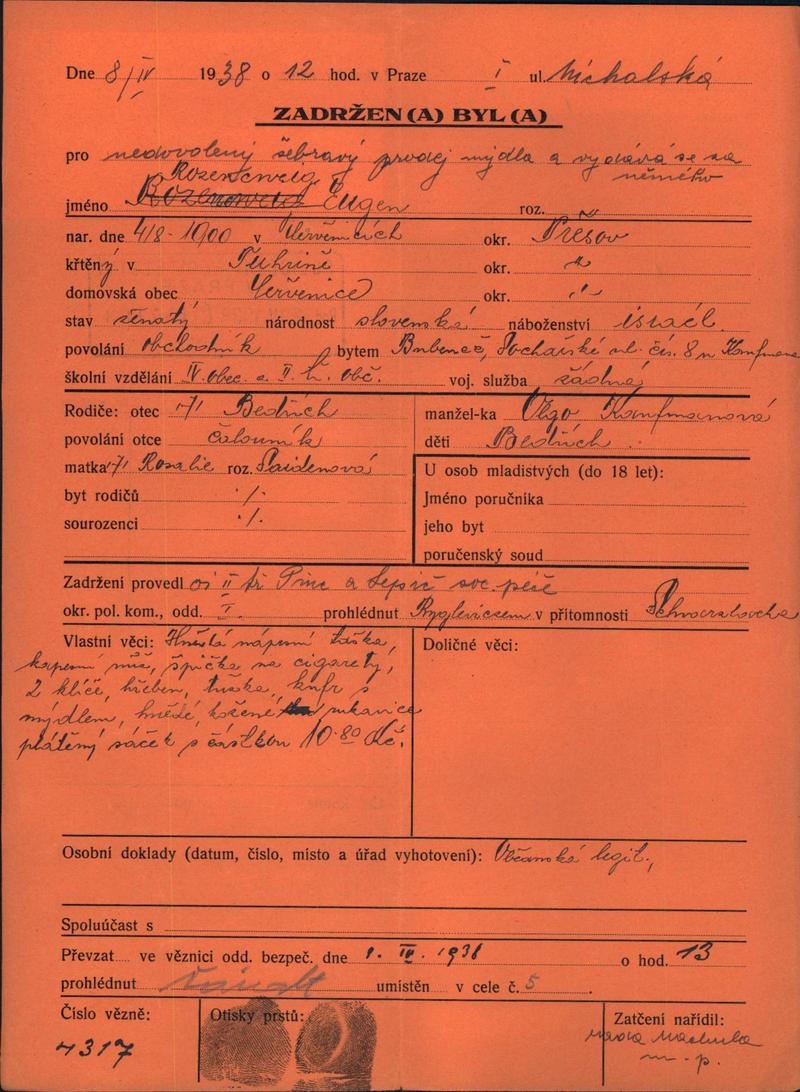 Dne 8/IV 1938 o 12 hod. v Praze I ul. Michalská
ZADRŽEN(A) BYL(A)
pro nedovolený žebravý prodej mýdla a vydává se za
němého
Rozenzweig
jméno Eugen roz. "
nar. dne 4/8-1900 v Červenicích okr. Prešov
křtěný v Tuhrině okr. "
domovská obec Červenice okr. "
stav ženatý národnost slovenská náboženství israél.
povolání obchodník bytem Bubeneč, Sochařská ul. čís. 8 u Kaufmana
školní vzdělání IV. obec. a II. tř. obč. voj. služba žádná
Rodiče: otec /†/ Bedřich manžel-ka Olga Kaufmanová
povolání otce čalouník děti Bedřich
matka /†/ Rosalie roz.
U osob mladistvých (do 18 let):
byt rodičů ./. Jméno poručníka
sourozenci ./. jeho byt
poručenský soud
Zadržení provedl II tř. Pinc a soc. péče
okr. pol. kom., odd. I. prohlédnut v přítomnosti
Vlastní věci: Hnědá náprsní taška, Doličné věci:
kapesní nůž, špička na cigarety,
2 klíče, hřeben, tužka, kufr s
mýdlem, hnědé, kožené rukavice
plátěný sáček s částkou 10.80 Kč.
Osobní doklady (datum, číslo, místo a úřad vyhotovení): Občanská legit.,
Spoluúčast s
Převzat ve věznici odd. bezpeč. dne IV. 1938 o hod. 13
prohlédnut umístěn v cele č. 5
Číslo vězně: Otisky prstů: Zatčení nařídil:
4317 rada Machula
m. p.